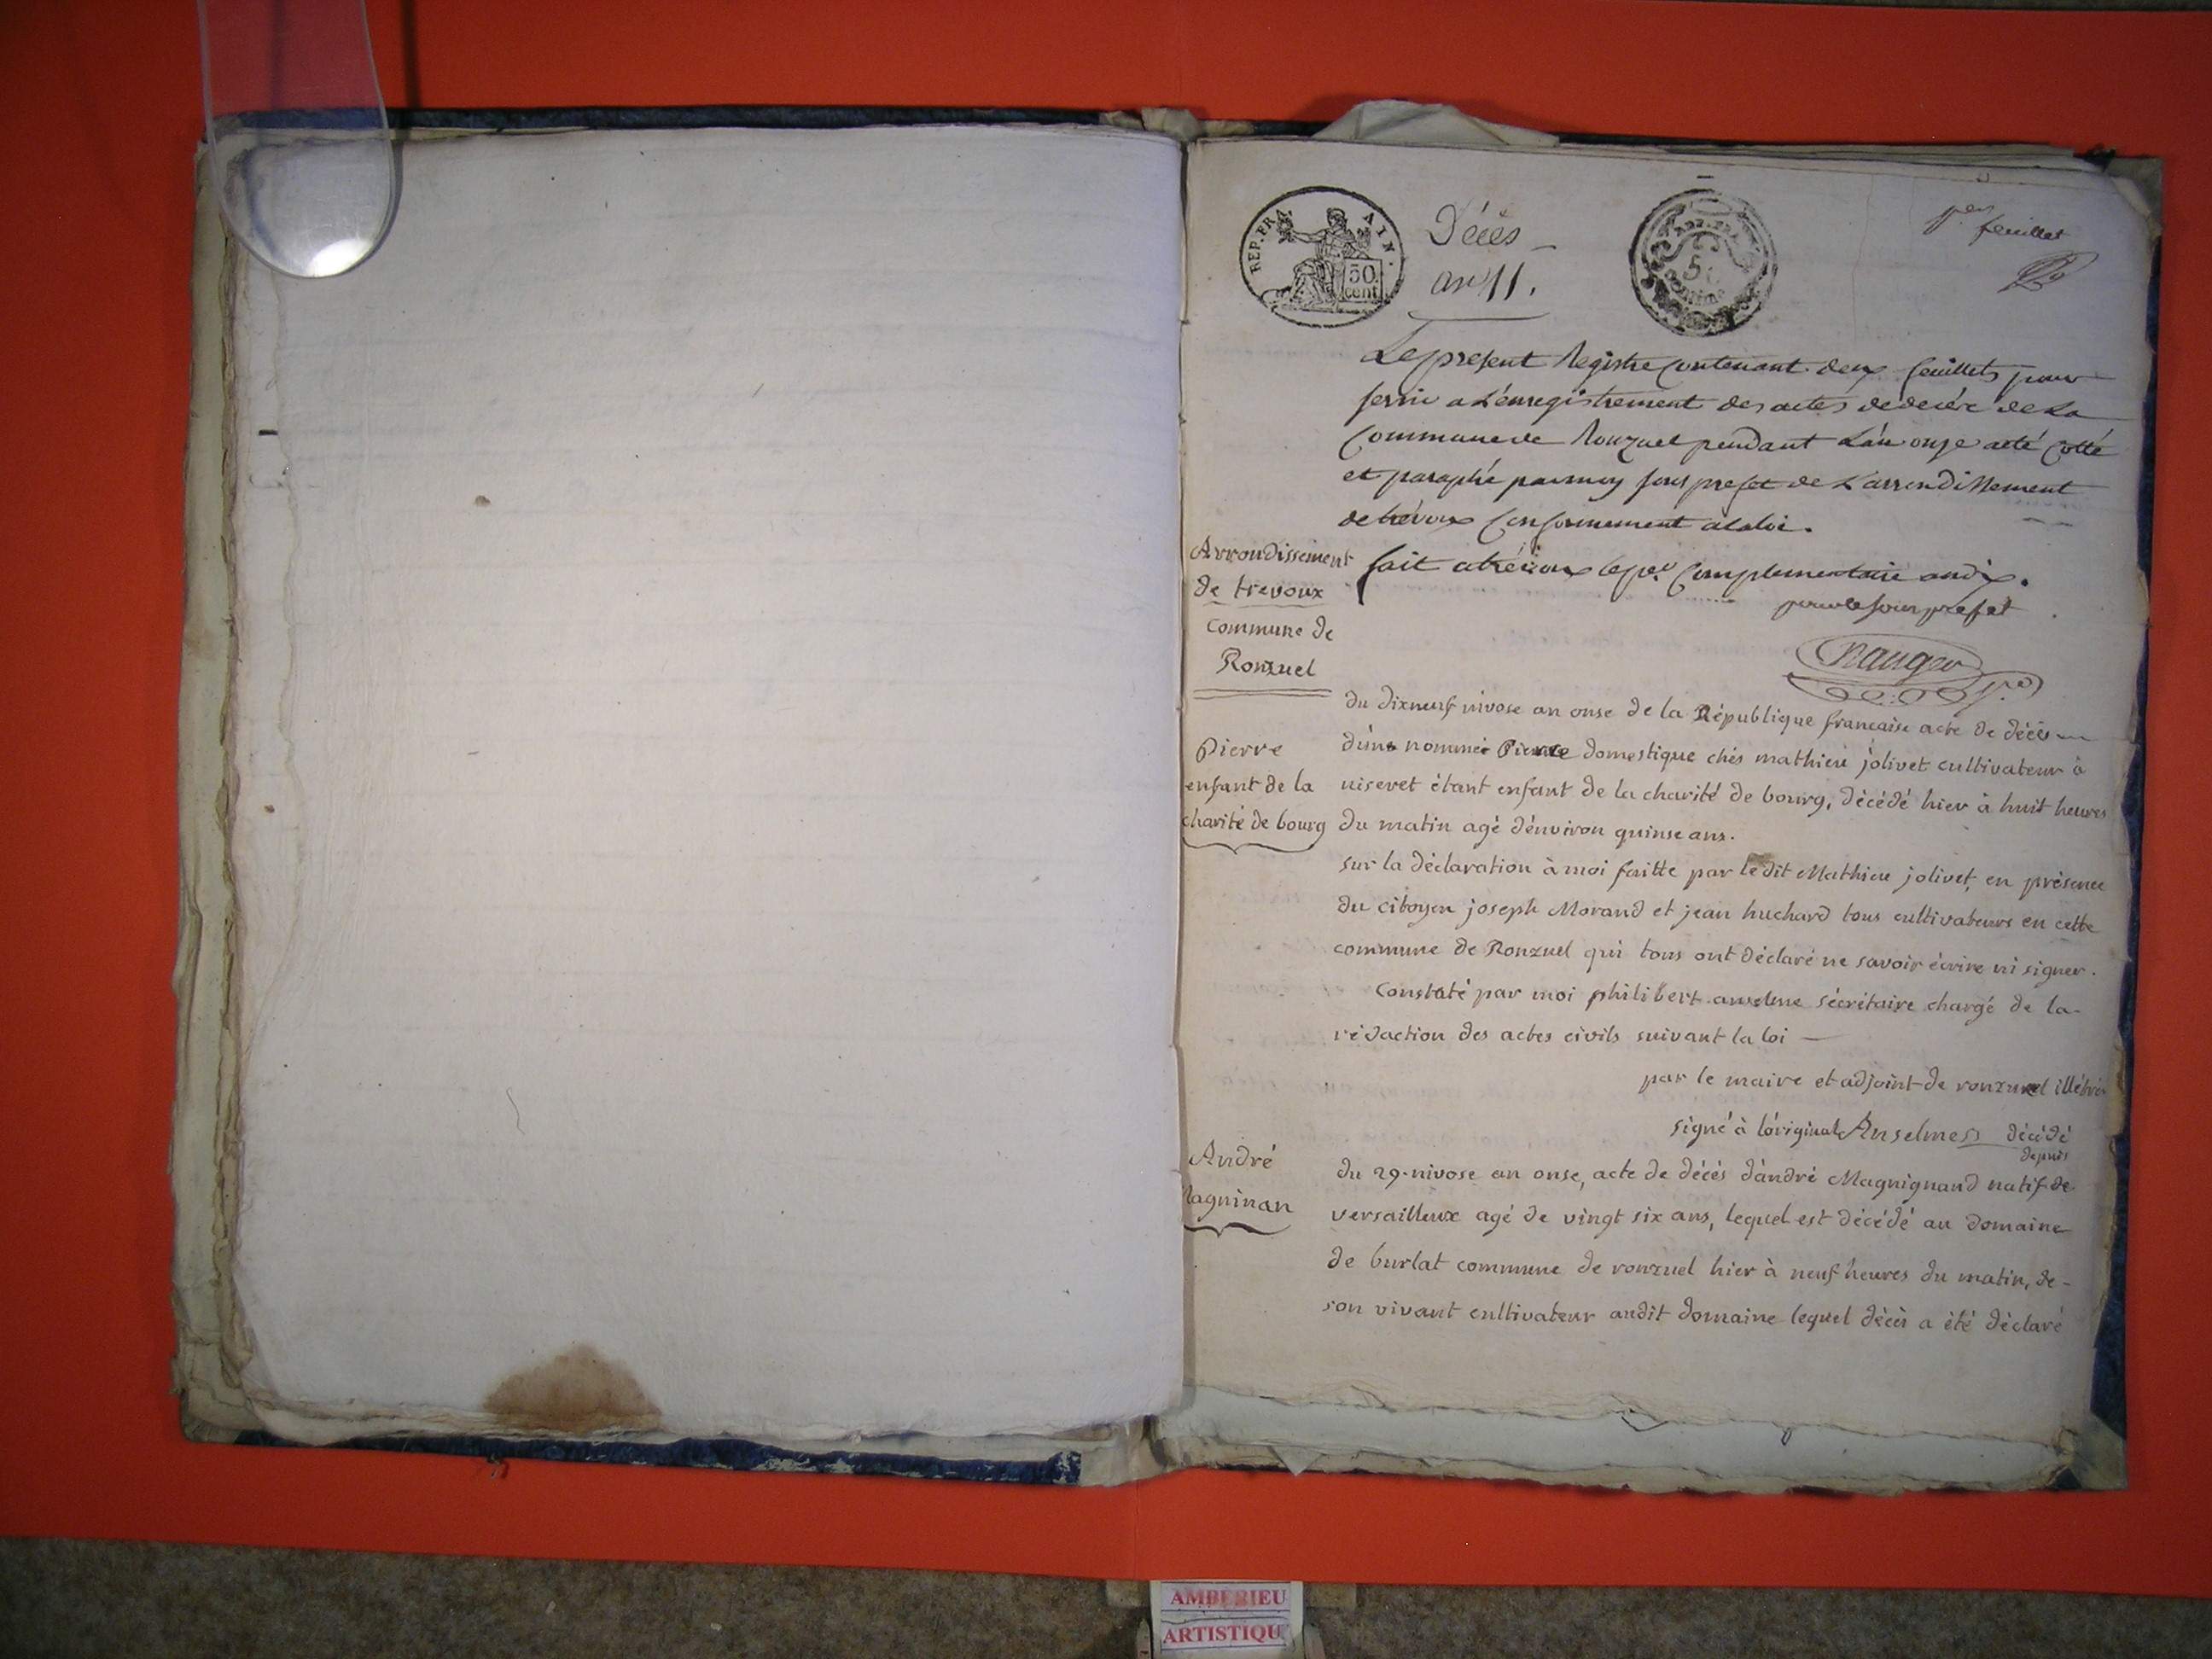 REP. FRA AIN.
50 cent
Décés
an 11.
per feuillet
Le present Registre Contenant deux feuillets pour
servir a L'enregistrement des actes de décéz de La
Commune de Ronzuel pendant L'an onze a été Cotté
et paraphé par moy sous prefet de L'arrondissement
de trévoux Conformement a la loi.
fait a trévoux le per Complementaire an dix.
pour le sous prefet
Arrondissement
de trevoux
Commune de
Ronzuel
Pierre
enfant de la
charité de bourg
du dixneuf nivose an onse de la République francaise acte de décés
d'une nommée Pierre domestique chés mathieu jolivet cultivateur à
niseret étant enfant de la charité de bourg, décédé hier à huit heures
du matin agé d'environ quinse ans.
sur la déclaration à moi faitte par le dit Mathieu jolivet, en présence
du citoyen joseph Morand et jean huchard tous cultivateurs en cette
commune de Ronzuel qui tous ont déclaré ne savoir écrire ni signer.
Constaté par moi philibert anselme sécrétaire chargé de la
rédaction des actes civils suivant la loi
par le maire et adjoint de ronzuel illétrés
signé à l'original Anselmes décédé
depuis
André
Magninan
du 29 nivose an onse, acte de décés d'andré Magnignand natif de
versailleux agé de vingt six ans, lequel est décédé au domaine
de burlat commune de ronzuel hier à neuf heures du matin, de
son vivant cultivateur audit domaine lequel décés a été déclaré
AMBERIEU
ARTISTIQU